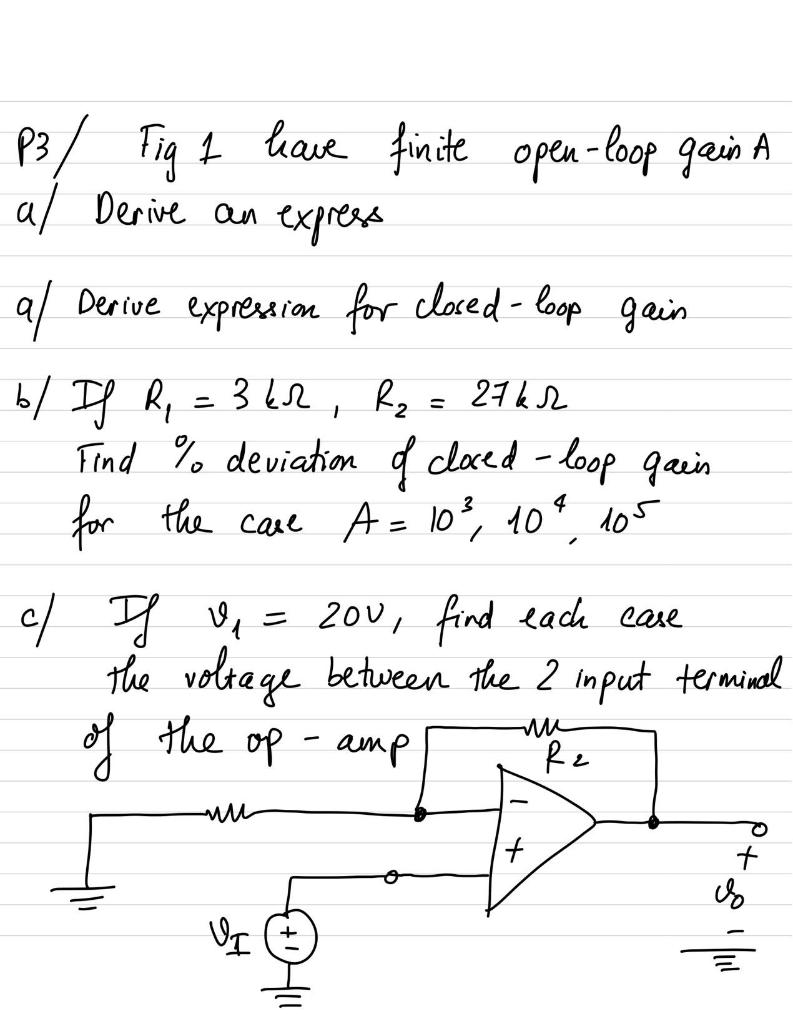 P3/ Fig 1 have finite open-loop gain A
a/ Derive an express
a/ Derive expression for closed-loop gain
b/ If R₁ = 3 kΩ, R₂ = 27 kΩ
Find % deviation of closed-loop gain
for the case A = 10³, 10⁴, 10⁵
c/ If v₁ = 20V, find each case
the voltage between the 2 input terminal
of the op-amp
R₂
−
+
+
v₀
−
v_I
+
−